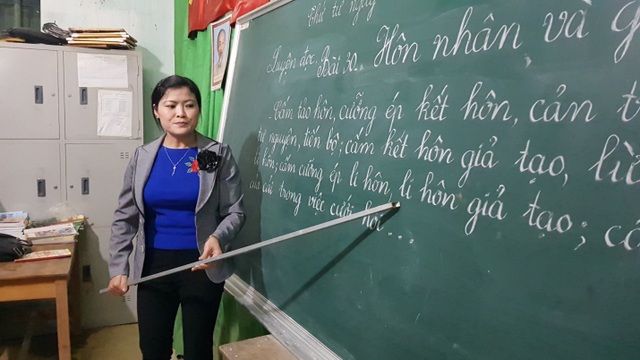 Thứ tư ngày
Luyện đọc: Bài 30. Hôn nhân và g
Cấm tảo hôn, cưỡng ép kết hôn, cản t
tự nguyện, tiến bộ; cấm kết hôn giả tạo, li
li hôn; cấm cưỡng ép li hôn, li hôn giả tạo; cấ
của cải trong việc cưới hỏi ...